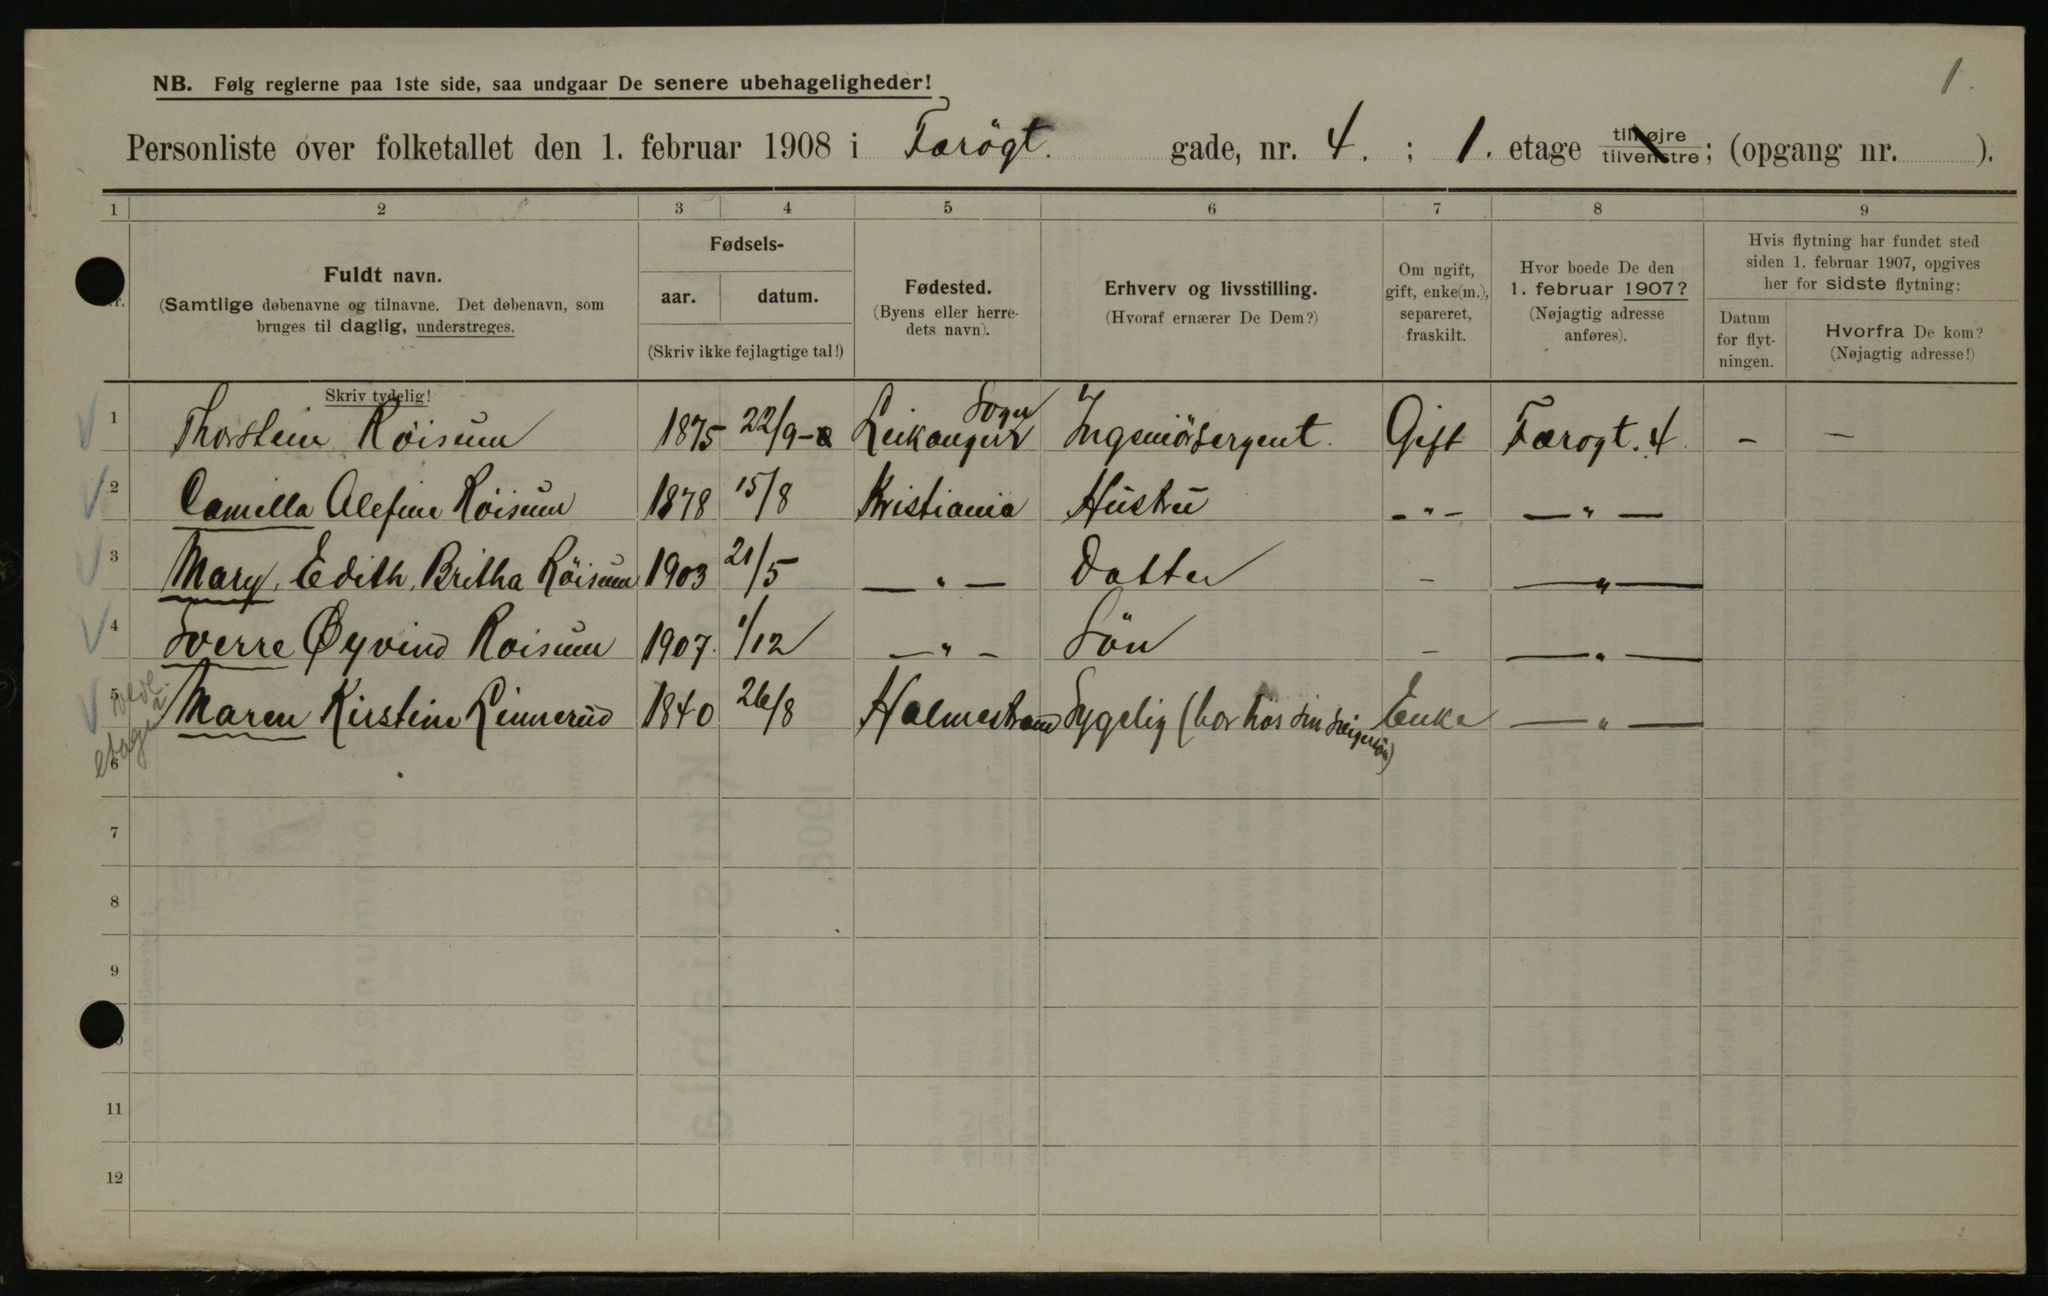 1.
NB. Følg reglerne paa 1ste side, saa undgaar De senere ubehageligheder!
Personliste over folketallet den 1. februar 1908 i Færögt. gade, nr. 4. ; 1. etage tilhøjre tilvenstre; (opgang nr. ).
1 2 3 4 5 6 7 8 9
Nr.
Fuldt navn.
(Samtlige døbenavne og tilnavne. Det døbenavn, som
bruges til daglig, understreges.
Skriv tydelig!
Fødsels-
aar. datum.
(Skriv ikke fejlagtige tal!)
Fødested.
(Byens eller herre-
dets navn).
Erhverv og livsstilling.
(Hvoraf ernærer De Dem?)
Om ugift,
gift, enke(m.),
separeret,
fraskilt.
Hvor boede De den
1. februar 1907?
(Nøjagtig adresse
anføres).
Hvis flytning har fundet sted
siden 1. februar 1907, opgives
her for sidste flytning:
Datum
for flyt-
ningen.
Hvorfra De kom?
(Nøjagtig adresse!)
1 Thorstein Røisum 1875 22/9 Leikanger Sogn Ingeniörsergent. Gift Færogt. 4. – –
2 Camilla Alefine Röisum 1878 15/8 Kristiania Hustru – " – – " –
3 Mary, Edith, Britha Röisum 1903 21/5 – " – Datter – – " –
4 Sverre Øyvind Roisum 1907. 1/12 – " – Sön – – " –
5 Maren Kirstine Linnerud 1840 26/8 Holmestrand Sygelig (bor hos sin Svigersön) Enke – " –
etage
6
7
8
9
11
12